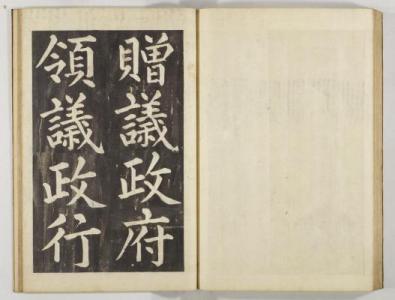 贈議政府
領議政行